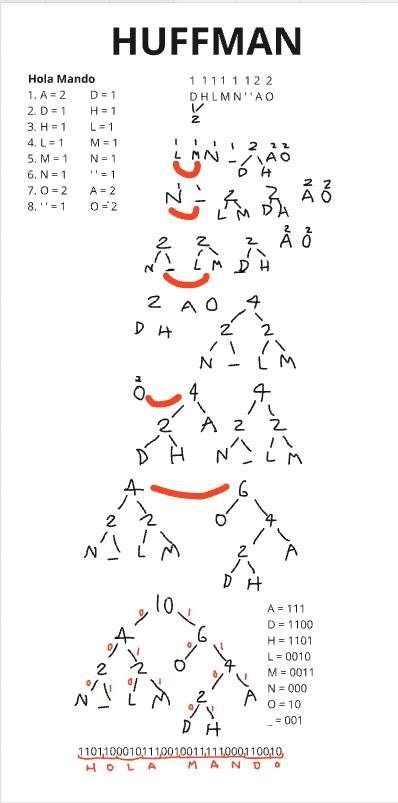 HUFFMAN
Hola Mando
1. A = 2 D = 1
2. D = 1 H = 1
3. H = 1 L = 1
4. L = 1 M = 1
5. M = 1 N = 1
6. N = 1 ' ' = 1
7. O = 2 A = 2
8. ' ' = 1 O = 2
1 1 1 1 1 1 2 2
D H L M N ' ' A O
2
1 1 1 1 2 2 2
L M N _ A O
D H
N _ 2 2 2 2
A O
L M D H
2 2 2 2 2
A O
N _ L M D H
2 A O 4
D H 2 2
N _ L M
2
O 4 4
2 A 2 2
D H N _ L M
4 6
2 2 O 4
N _ L M 2 A
D H
10
0 1
4 6
0 1 0 1
2 2 O 4
0 1 0 1 0 1
N _ L M 2 A
0 1
D H
A = 111
D = 1100
H = 1101
L = 0010
M = 0011
N = 000
O = 10
_ = 001
11011000101110010011111000110010
H O L A M A N D O